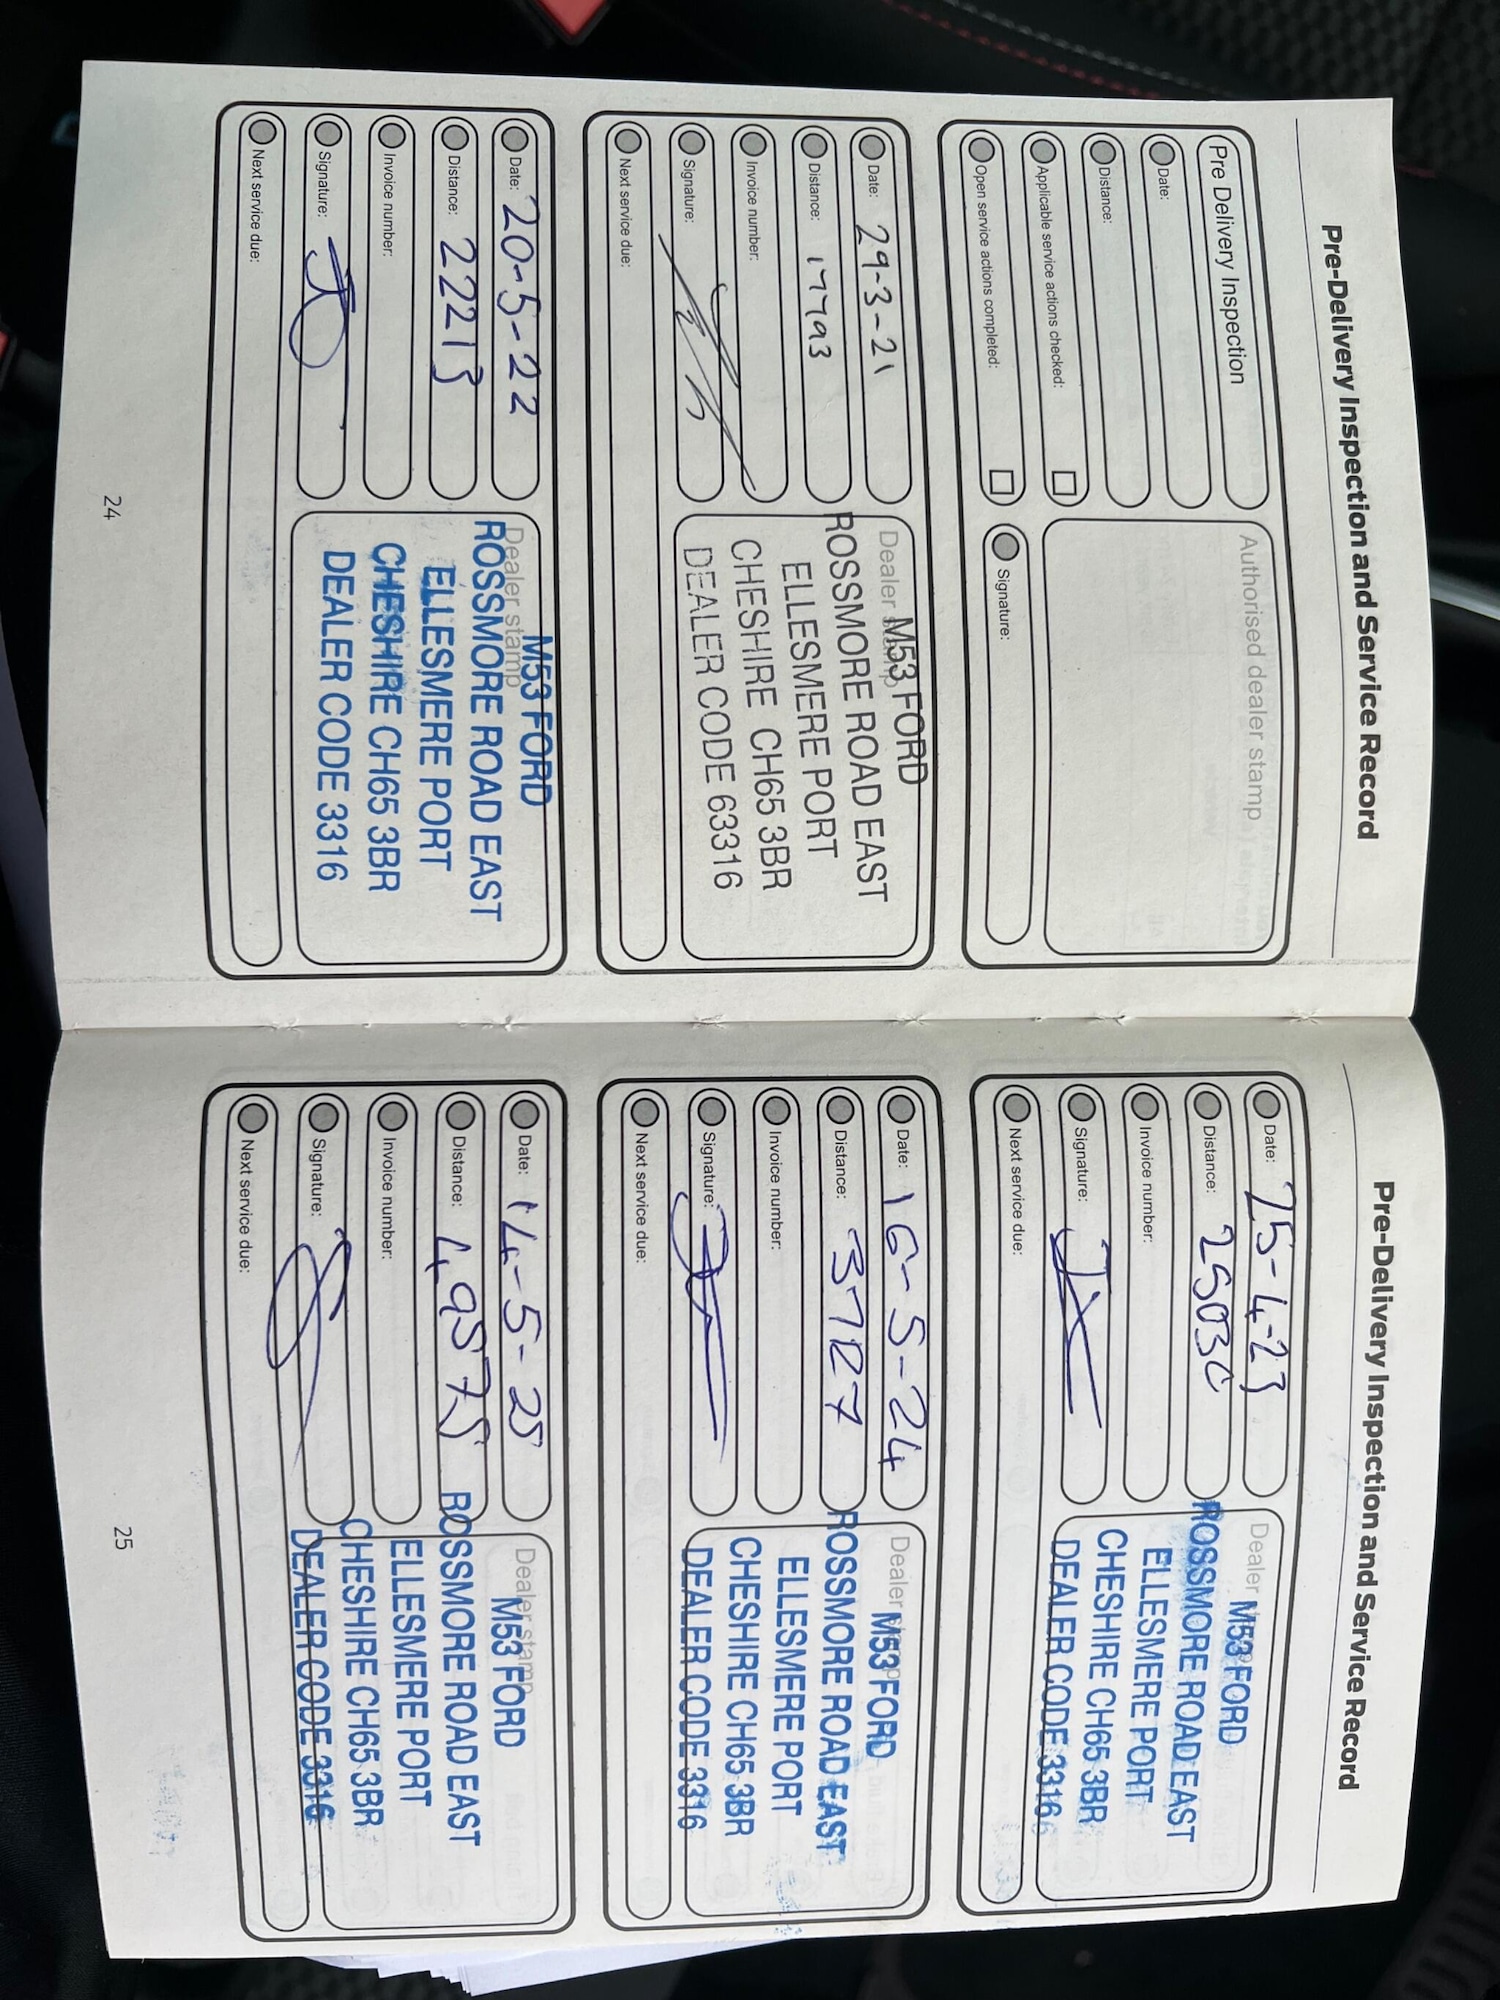 Pre-Delivery Inspection and Service Record
Pre Delivery Inspection
Date:
Distance:
Applicable service actions checked:
Open service actions completed:
Authorised dealer stamp
Signature:
Date: 29-3-21
Distance: 17793
Invoice number:
Signature:
Next service due:
Dealer stamp
M53 FORD
ROSSMORE ROAD EAST
ELLESMERE PORT
CHESHIRE CH65 3BR
DEALER CODE 63316
Date: 20-5-22
Distance: 22213
Invoice number:
Signature:
Next service due:
Dealer stamp
M53 FORD
ROSSMORE ROAD EAST
ELLESMERE PORT
CHESHIRE CH65 3BR
DEALER CODE 3316
24
Pre-Delivery Inspection and Service Record
Date: 25-4-23
Distance:
Invoice number:
Signature:
Next service due:
Dealer
M53 FORD
ROSSMORE ROAD EAST
ELLESMERE PORT
CHESHIRE CH65 3BR
DEALER CODE 3316
Date: 16-5-24
Distance:
Invoice number:
Signature:
Next service due:
Dealer stamp
M53 FORD
ROSSMORE ROAD EAST
ELLESMERE PORT
CHESHIRE CH65 3BR
DEALER CODE 3316
Date: 14-5-25
Distance: 49575
Invoice number:
Signature:
Next service due:
Dealer stamp
M53 FORD
ROSSMORE ROAD EAST
ELLESMERE PORT
CHESHIRE CH65 3BR
DEALER CODE 3316
25